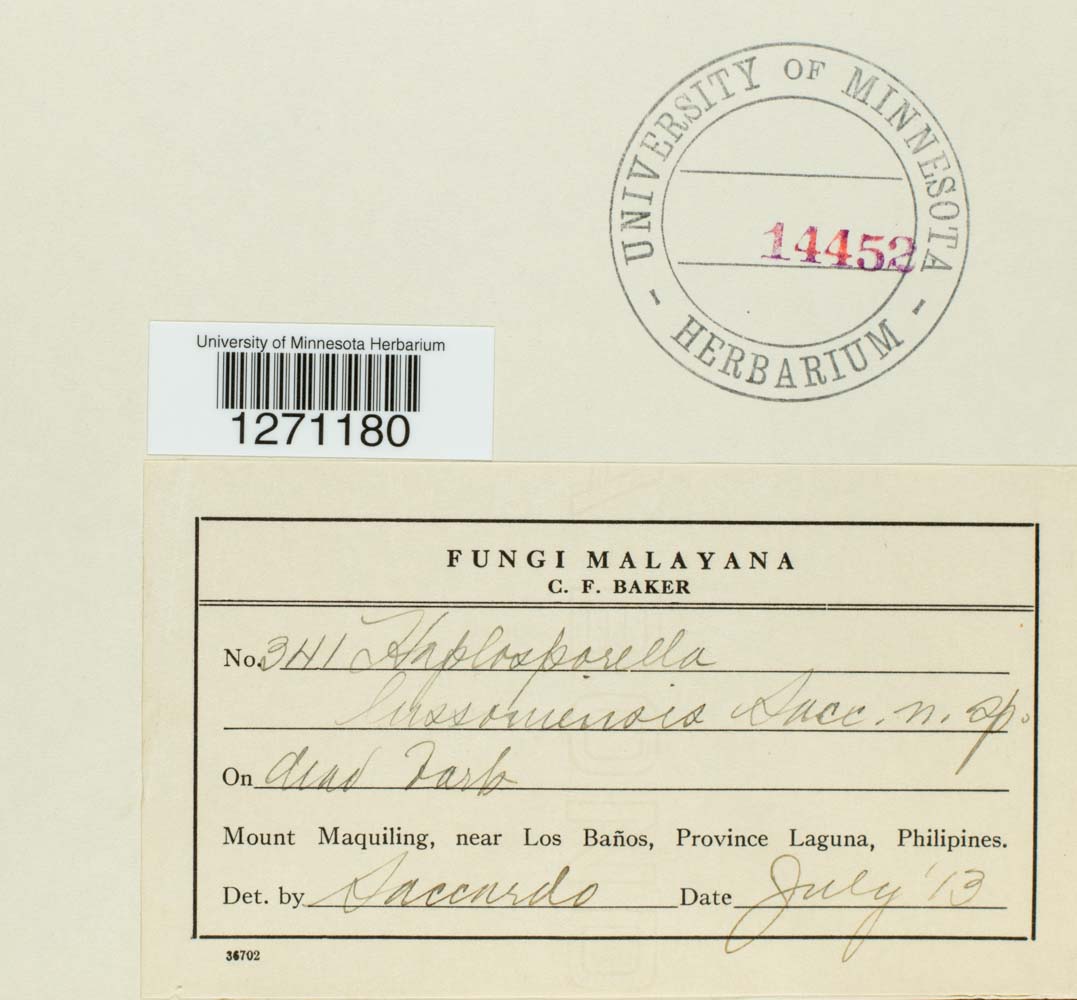 UNIVERSITY OF MINNESOTA
- HERBARIUM -
14452
University of Minnesota Herbarium
1271180
FUNGI MALAYANA
C. F. BAKER
No. 341 Haplosporella
Sacc. n. sp.
On dead bark
Mount Maquiling, near Los Baños, Province Laguna, Philipines.
Det. by Saccardo Date July '13
36702